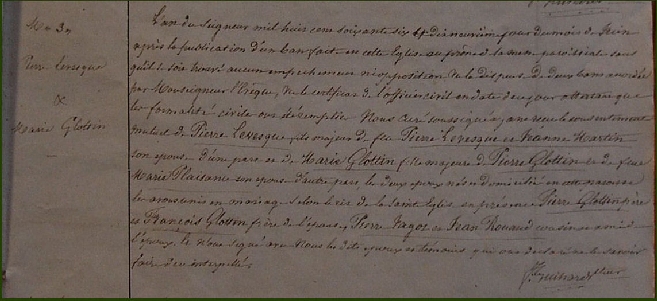 Pierre Levesque
&
Marie Glottin
L'an du Seigneur mil huit cent soixante six le dix neuvième jour du mois de Juin
après la publication d'un ban fait en cette Eglise au prône de la messe paroissiale sans
qu'il se soit trouvé aucun empêchement ni opposition Vu la dispense de deux bans accordée
par Monseigneur l'Evêque, Vu le certificat de l'officier civil en date de ce jour attestant que
les formalités civiles ont été remplies Nous Curé soussigné, avons reçu le consentement
mutuel de Pierre Levesque fils majeur de feu Pierre Levesque et Jeanne Martin
son épouse d'une part et de Marie Glottin fille majeure de Pierre Glottin et de feue
Marie Plaitance son épouse d'autre part, les deux époux nés et domiciliés en cette paroisse
les avons unis en mariage selon le rite de la Sainte Eglise en présence Pierre Glottin père
et François Glottin frère de l'épouse, Pierre et Jean Rouaud cousin et ami de
l'époux, le Nous Signé avec Nous les dits époux et témoins qui ont déclaré ne le savoir
faire de ce interpellés